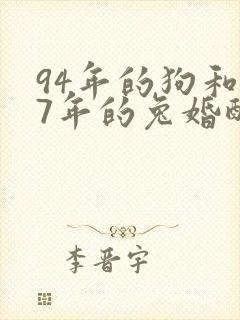 94年的狗和
7年的兔婚配
李晋宇